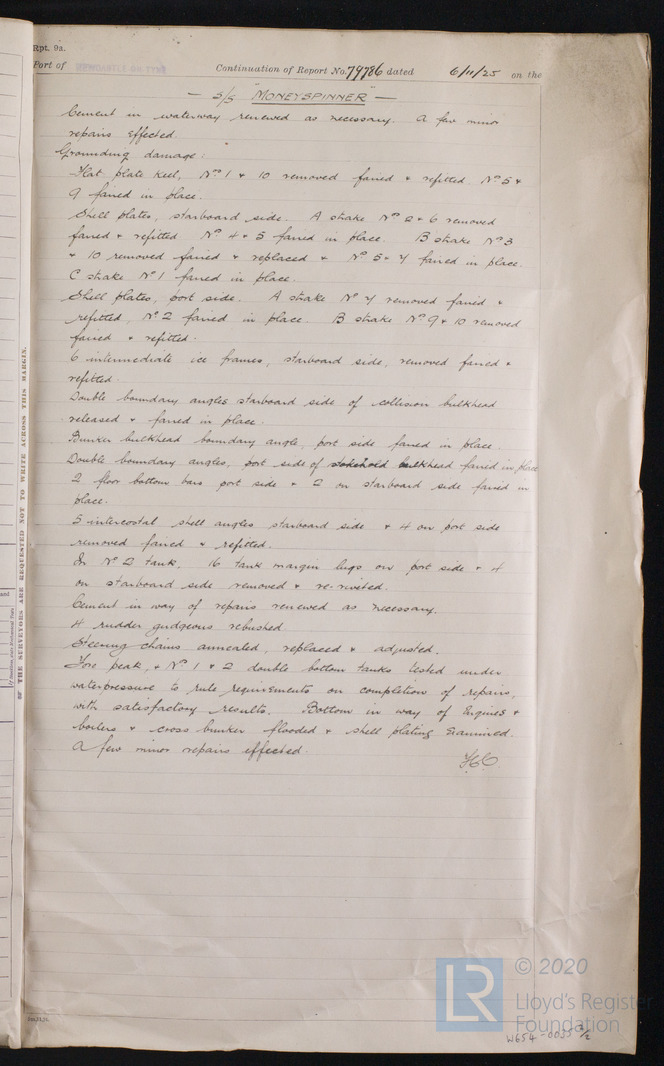 Rpt. 9a.
Port of NEWCASTLE ON TYNE Continuation of Report No. 79786 dated 6/11/25 on the
— S/S "MONEYSPINNER" —
Cement in waterway renewed as necessary. A few minor
repairs effected.
Grounding damage:
Flat plate keel, Nos 1 & 10 removed faired & refitted. Nos 5 &
9 faired in place.
Shell plates, starboard side. A strake Nos 2 & 6 removed
faired & refitted Nos 4 & 5 faired in place. B strake Nos 3
& 10 removed faired & replaced & Nos 5 & 7 faired in place.
C strake No 1 faired in place.
Shell plates, port side. A strake No 7 removed faired &
refitted, No 2 faired in place. B strake Nos 9 & 10 removed
faired & refitted.
6 intermediate ice frames, starboard side, removed faired &
refitted.
Double boundary angles starboard side of collision bulkhead
released & faired in place.
Bunker bulkhead boundary angle, port side faired in place.
Double boundary angles, port side of stokehold bulkhead faired in place
2 floor bottom bars port side & 2 on starboard side faired in
place.
5 intercostal shell angles starboard side & 4 on port side
removed faired & refitted.
In No 2 tank. 16 tank margin lugs on port side & 4
on starboard side removed & re-riveted.
Cement in way of repairs renewed as necessary.
4 rudder gudgeons rebushed.
Steering chains annealed, replaced & adjusted.
Fore peak, & Nos 1 & 2 double bottom tanks tested under
waterpressure to rule requirements on completion of repairs,
with satisfactory results. Bottom in way of Engines &
boilers & cross bunker flooded & shell plating examined.
A few minor repairs effected.
OF THE SURVEYORS ARE REQUESTED NOT TO WRITE ACROSS THIS MARGIN.
LR
© 2020
Lloyd's Register
Foundation
W654-0035 2/2